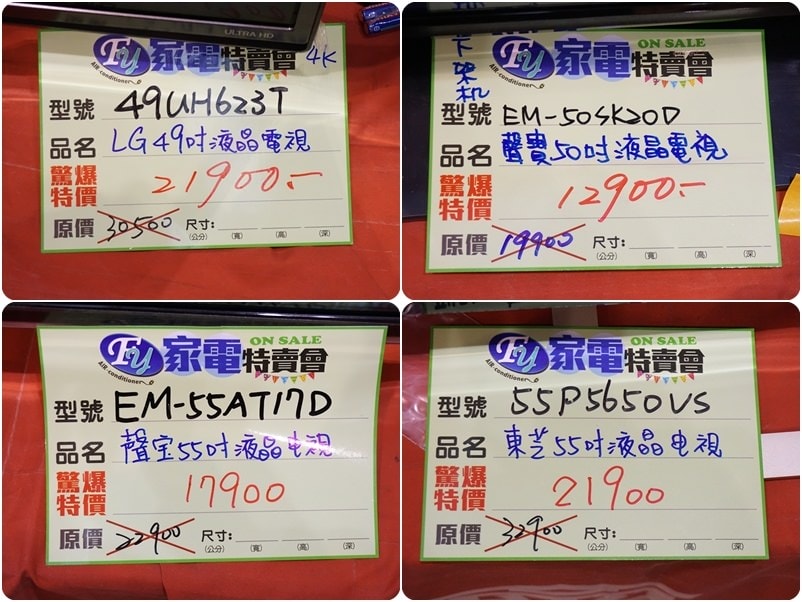 ULTRA HD
FY 家電特賣會 4K
AIR-conditioner
型號 49UH623T
品名 LG49吋液晶電視
驚爆特價 21900.-
原價 30500 尺寸:
(公分) (寬) (高) (深)
下架机
ON SALE
FY 家電特賣會
型號 EM-50SK20D
品名 聲寶50吋液晶電視
驚爆特價 12900.-
原價 19900 尺寸:
(公分) (寬) (高) (深)
ON SALE
FY 家電特賣會
AIR-conditioner
型號 EM-55AT17D
品名 聲宝55吋液晶电視
驚爆特價 17900
原價 22900 尺寸:
(公分) (寬) (高) (深)
ON SALE
FY 家電特賣會
AIR-conditioner
型號 55P5650VS
品名 東芝55吋液晶电視
驚爆特價 21900
原價 32900 尺寸:
(公分) (寬) (高) (深)